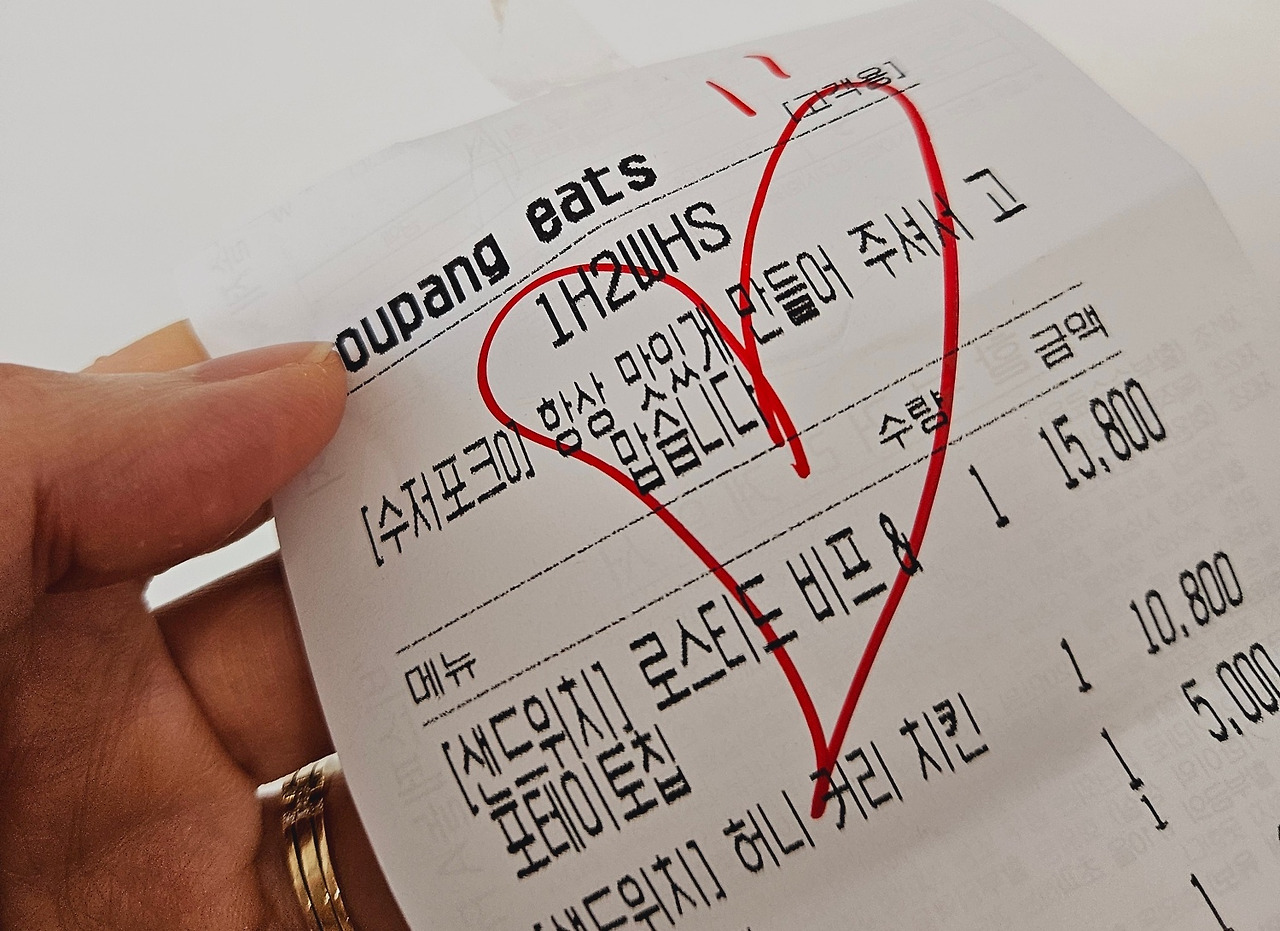 oupang eats
[고객용]
1H2WHS
[수저포크O] 항상 맛있게 만들어 주셔서 고
맙습니다
메뉴 수량 금액
[샌드위치] 로스티드 비프 & 1 15,800
포테이토칩
[샌드위치] 허니 커리 치킨 1 10,800
1 5,000
1
1